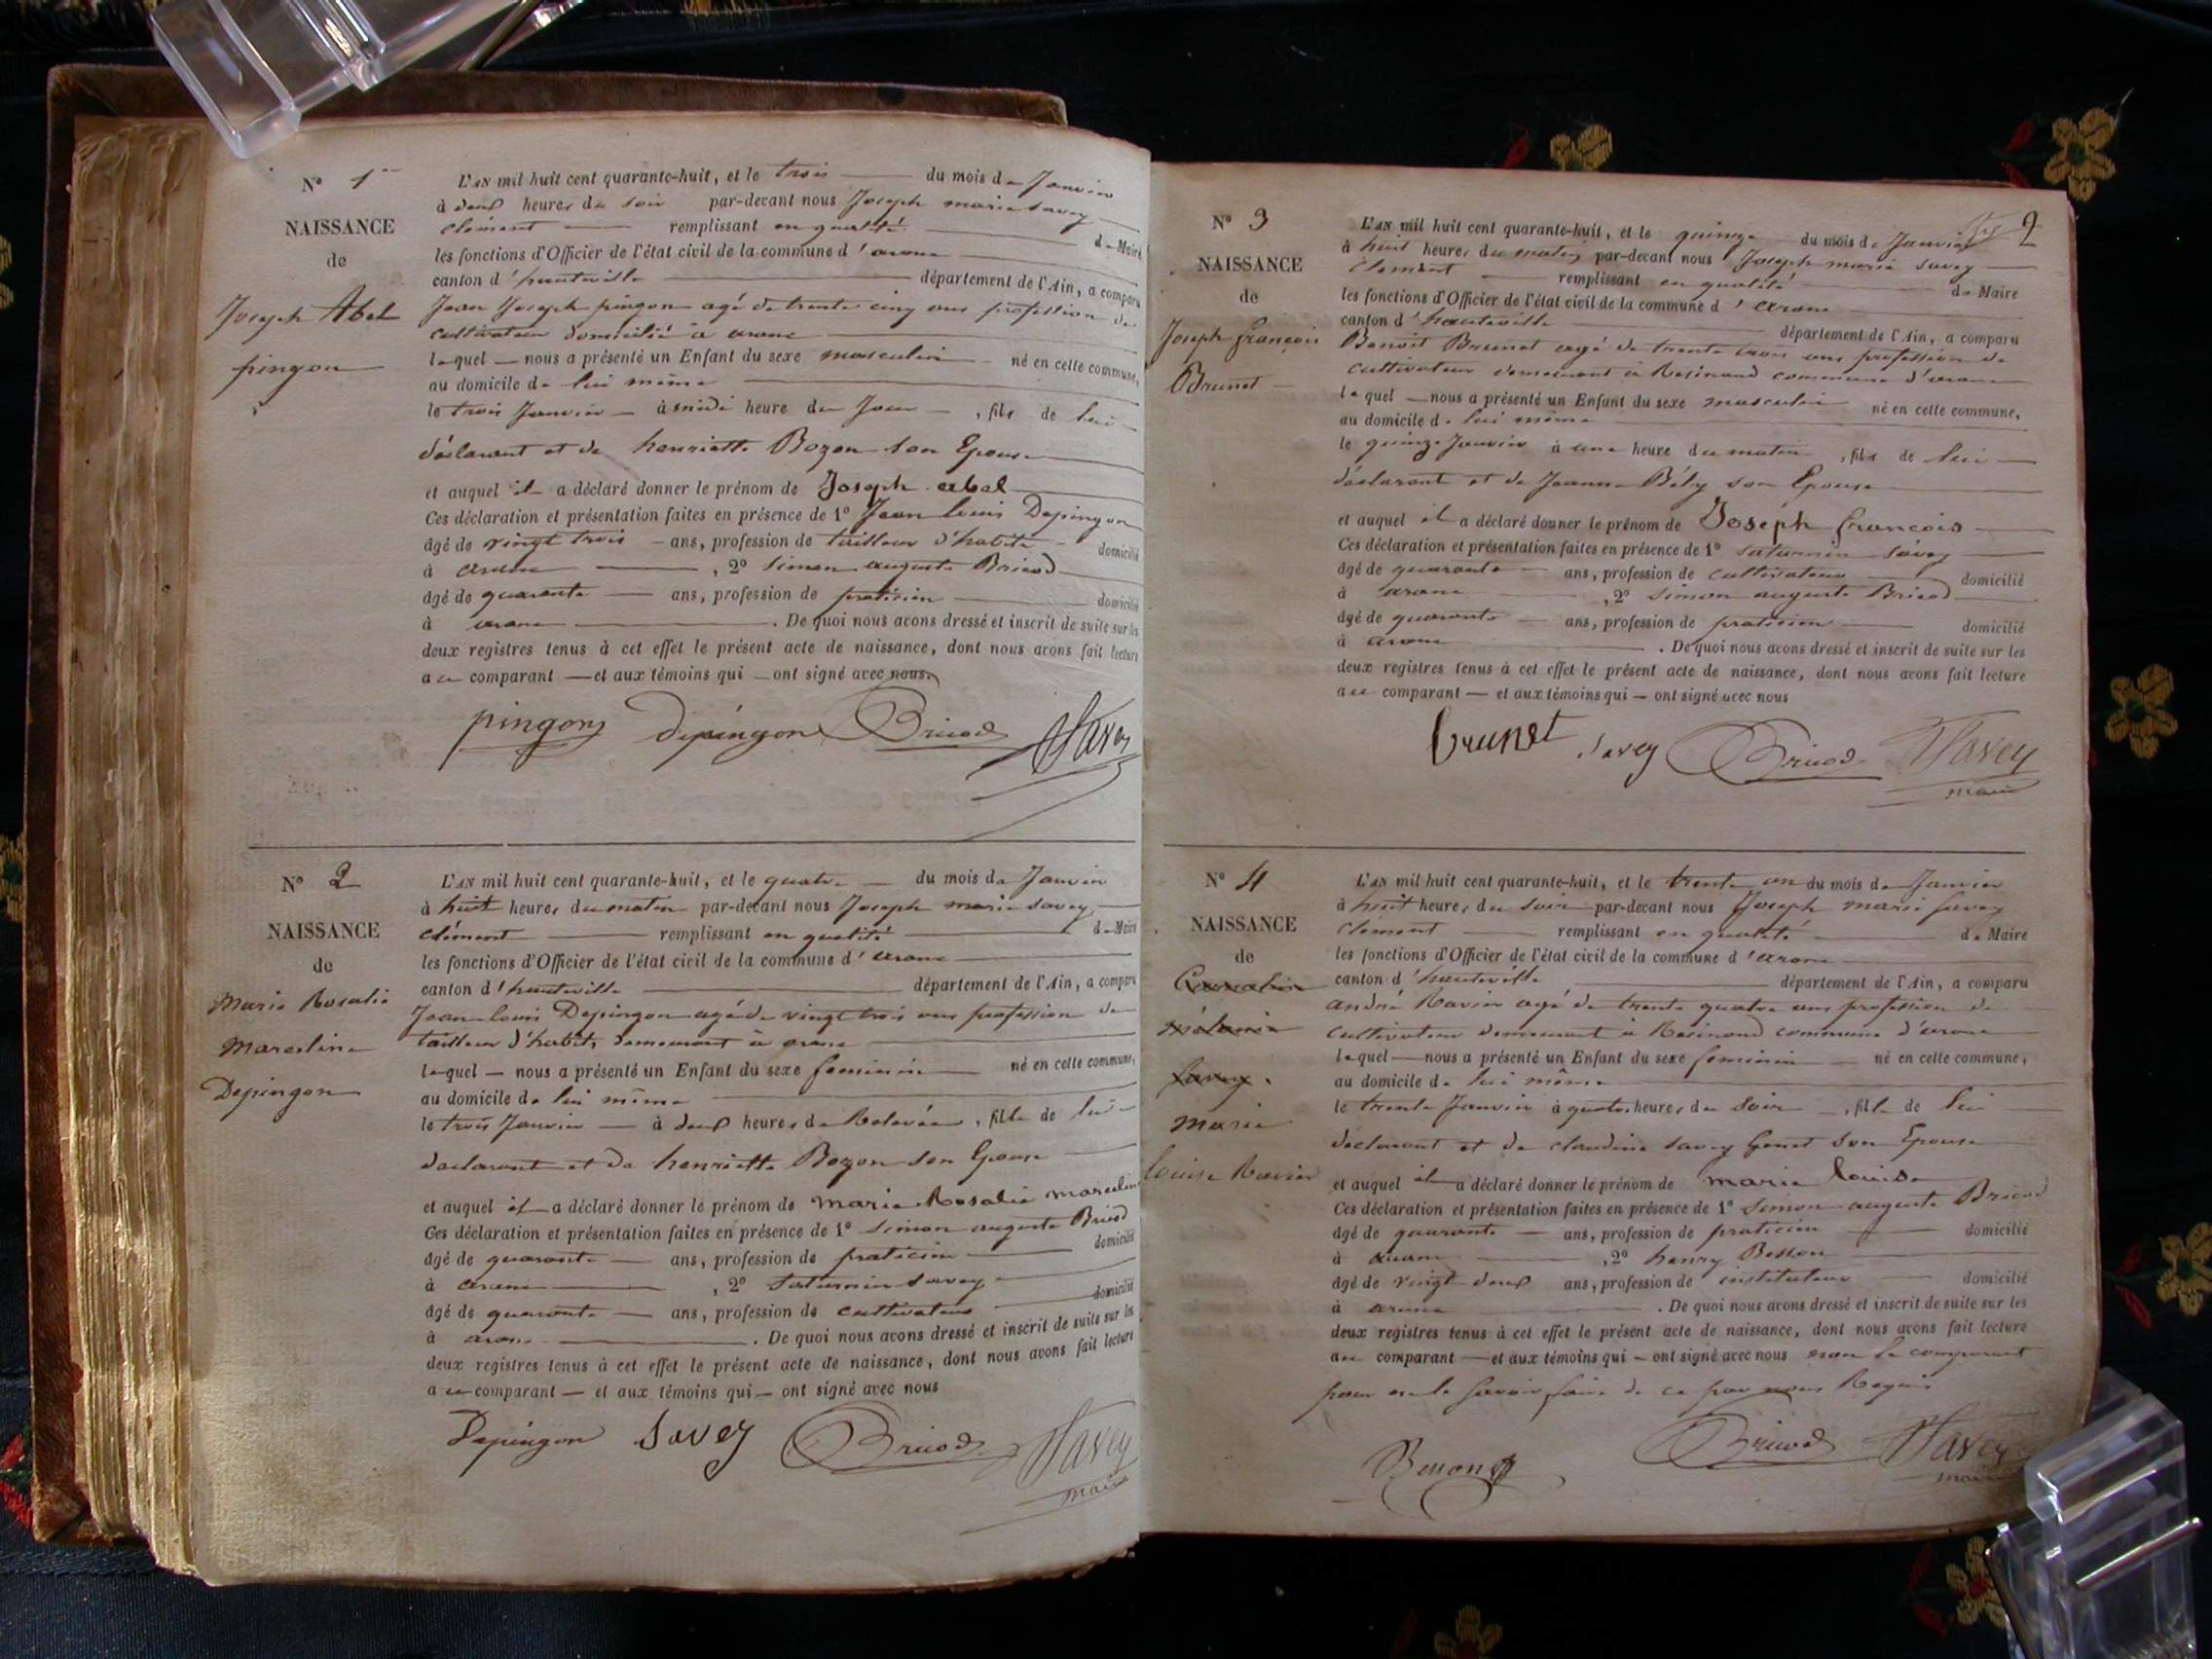 N° 1er
NAISSANCE
de
Joseph Abel
pingon
L'AN mil huit cent quarante-huit, et le trois du mois de Janvier
à deux heures du soir par-devant nous Joseph marie Savey
Clément remplissant en qualité de Maire
les fonctions d'Officier de l'état civil de la commune d'arane
canton d'hauteville département de l'Ain, a comparu
Jean Joseph pingon agé de trente cinq ans profession de
cultivateur domicilié à arane
lequel nous a présenté un Enfant du sexe masculin né en cette commune,
au domicile de lui même
le trois Janvier à midi heure du Jour, fils de lui
déclarant et de henriette Bozon son Epouse
et auquel il a déclaré donner le prénom de Joseph abel
Ces déclaration et présentation faites en présence de 1° Jean louis Depingon
âgé de vingt trois ans, profession de tailleur d'habits domicilié
à arane, 2° Simon auguste Bricod
âgé de quarante ans, profession de praticien domicilié
à arane. De quoi nous avons dressé et inscrit de suite sur les
deux registres tenus à cet effet le présent acte de naissance, dont nous avons fait lecture
au comparant et aux témoins qui ont signé avec nous.
pingon Depingon Bricod Savey
N° 2
NAISSANCE
de
Marie Rosalie
Marceline
Depingon
L'AN mil huit cent quarante-huit, et le quatre du mois de Janvier
à huit heures du matin par-devant nous Joseph marie Savey
Clément remplissant en qualité de Maire
les fonctions d'Officier de l'état civil de la commune d'arane
canton d'hauteville département de l'Ain, a comparu
Jean louis Depingon agé de vingt trois ans profession de
tailleur d'habits demeurant à arane
lequel nous a présenté un Enfant du sexe feminin né en cette commune,
au domicile de lui même
le trois Janvier à deux heures de Relevée, fille de lui
déclarant et de henriette Bozon son Epouse
et auquel il a déclaré donner le prénom de marie Rosalie marceline
Ces déclaration et présentation faites en présence de 1° Simon auguste Bricod
âgé de quarante ans, profession de praticien domicilié
à arane, 2° Saturnin Savey
âgé de quarante ans, profession de cultivateur domicilié
à arane. De quoi nous avons dressé et inscrit de suite sur les
deux registres tenus à cet effet le présent acte de naissance, dont nous avons fait lecture
au comparant et aux témoins qui ont signé avec nous
Depingon Savey Bricod Savey
maire
2
N° 3
NAISSANCE
de
Joseph françois
Brunet
L'AN mil huit cent quarante-huit, et le quinze du mois de Janvier
à huit heures du matin par-devant nous Joseph marie Savey
Clément remplissant en qualité de Maire
les fonctions d'Officier de l'état civil de la commune d'arane
canton d'hauteville département de l'Ain, a comparu
Benoit Brunet agé de trente trois ans profession de
cultivateur demeurant à Resinand commune d'arane
lequel nous a présenté un Enfant du sexe masculin né en cette commune,
au domicile de lui même
le quinze Janvier à une heure du matin, fils de lui
déclarant et de Jeanne Bély son Epouse
et auquel il a déclaré donner le prénom de Joseph françois
Ces déclaration et présentation faites en présence de 1° Saturnin Savey
âgé de quarante ans, profession de cultivateur domicilié
à arane, 2° Simon auguste Bricod
âgé de quarante ans, profession de praticien domicilié
à arane. De quoi nous avons dressé et inscrit de suite sur les
deux registres tenus à cet effet le présent acte de naissance, dont nous avons fait lecture
au comparant et aux témoins qui ont signé avec nous
brunet Savey Bricod Savey
maire
N° 4
NAISSANCE
de
mélanie
Savey.
Marie
louise Ravier
L'AN mil huit cent quarante-huit, et le trente un du mois de Janvier
à huit heures du soir par-devant nous Joseph marie Savey
Clément remplissant en qualité de Maire
les fonctions d'Officier de l'état civil de la commune d'arane
canton d'hauteville département de l'Ain, a comparu
andré Ravier agé de trente quatre ans profession de
cultivateur demeurant à Resinand commune d'arane
lequel nous a présenté un Enfant du sexe feminin né en cette commune,
au domicile de lui même
le trente Janvier à quatre heures du Soir, fille de lui
déclarant et de claudine Savey Genet son Epouse
et auquel il a déclaré donner le prénom de marie louise
Ces déclaration et présentation faites en présence de 1° Simon auguste Bricod
âgé de quarante ans, profession de praticien domicilié
à arane, 2° henry Besson
âgé de vingt deux ans, profession de instituteur domicilié
à arane. De quoi nous avons dressé et inscrit de suite sur les
deux registres tenus à cet effet le présent acte de naissance, dont nous avons fait lecture
au comparant et aux témoins qui ont signé avec nous non le comparant
pour ne le Savoir faire de ce par nous Requis
Besson Bricod Savey
maire